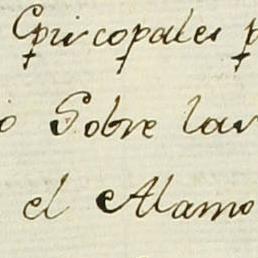 Episcopales p
o Sobre las
el Alamo